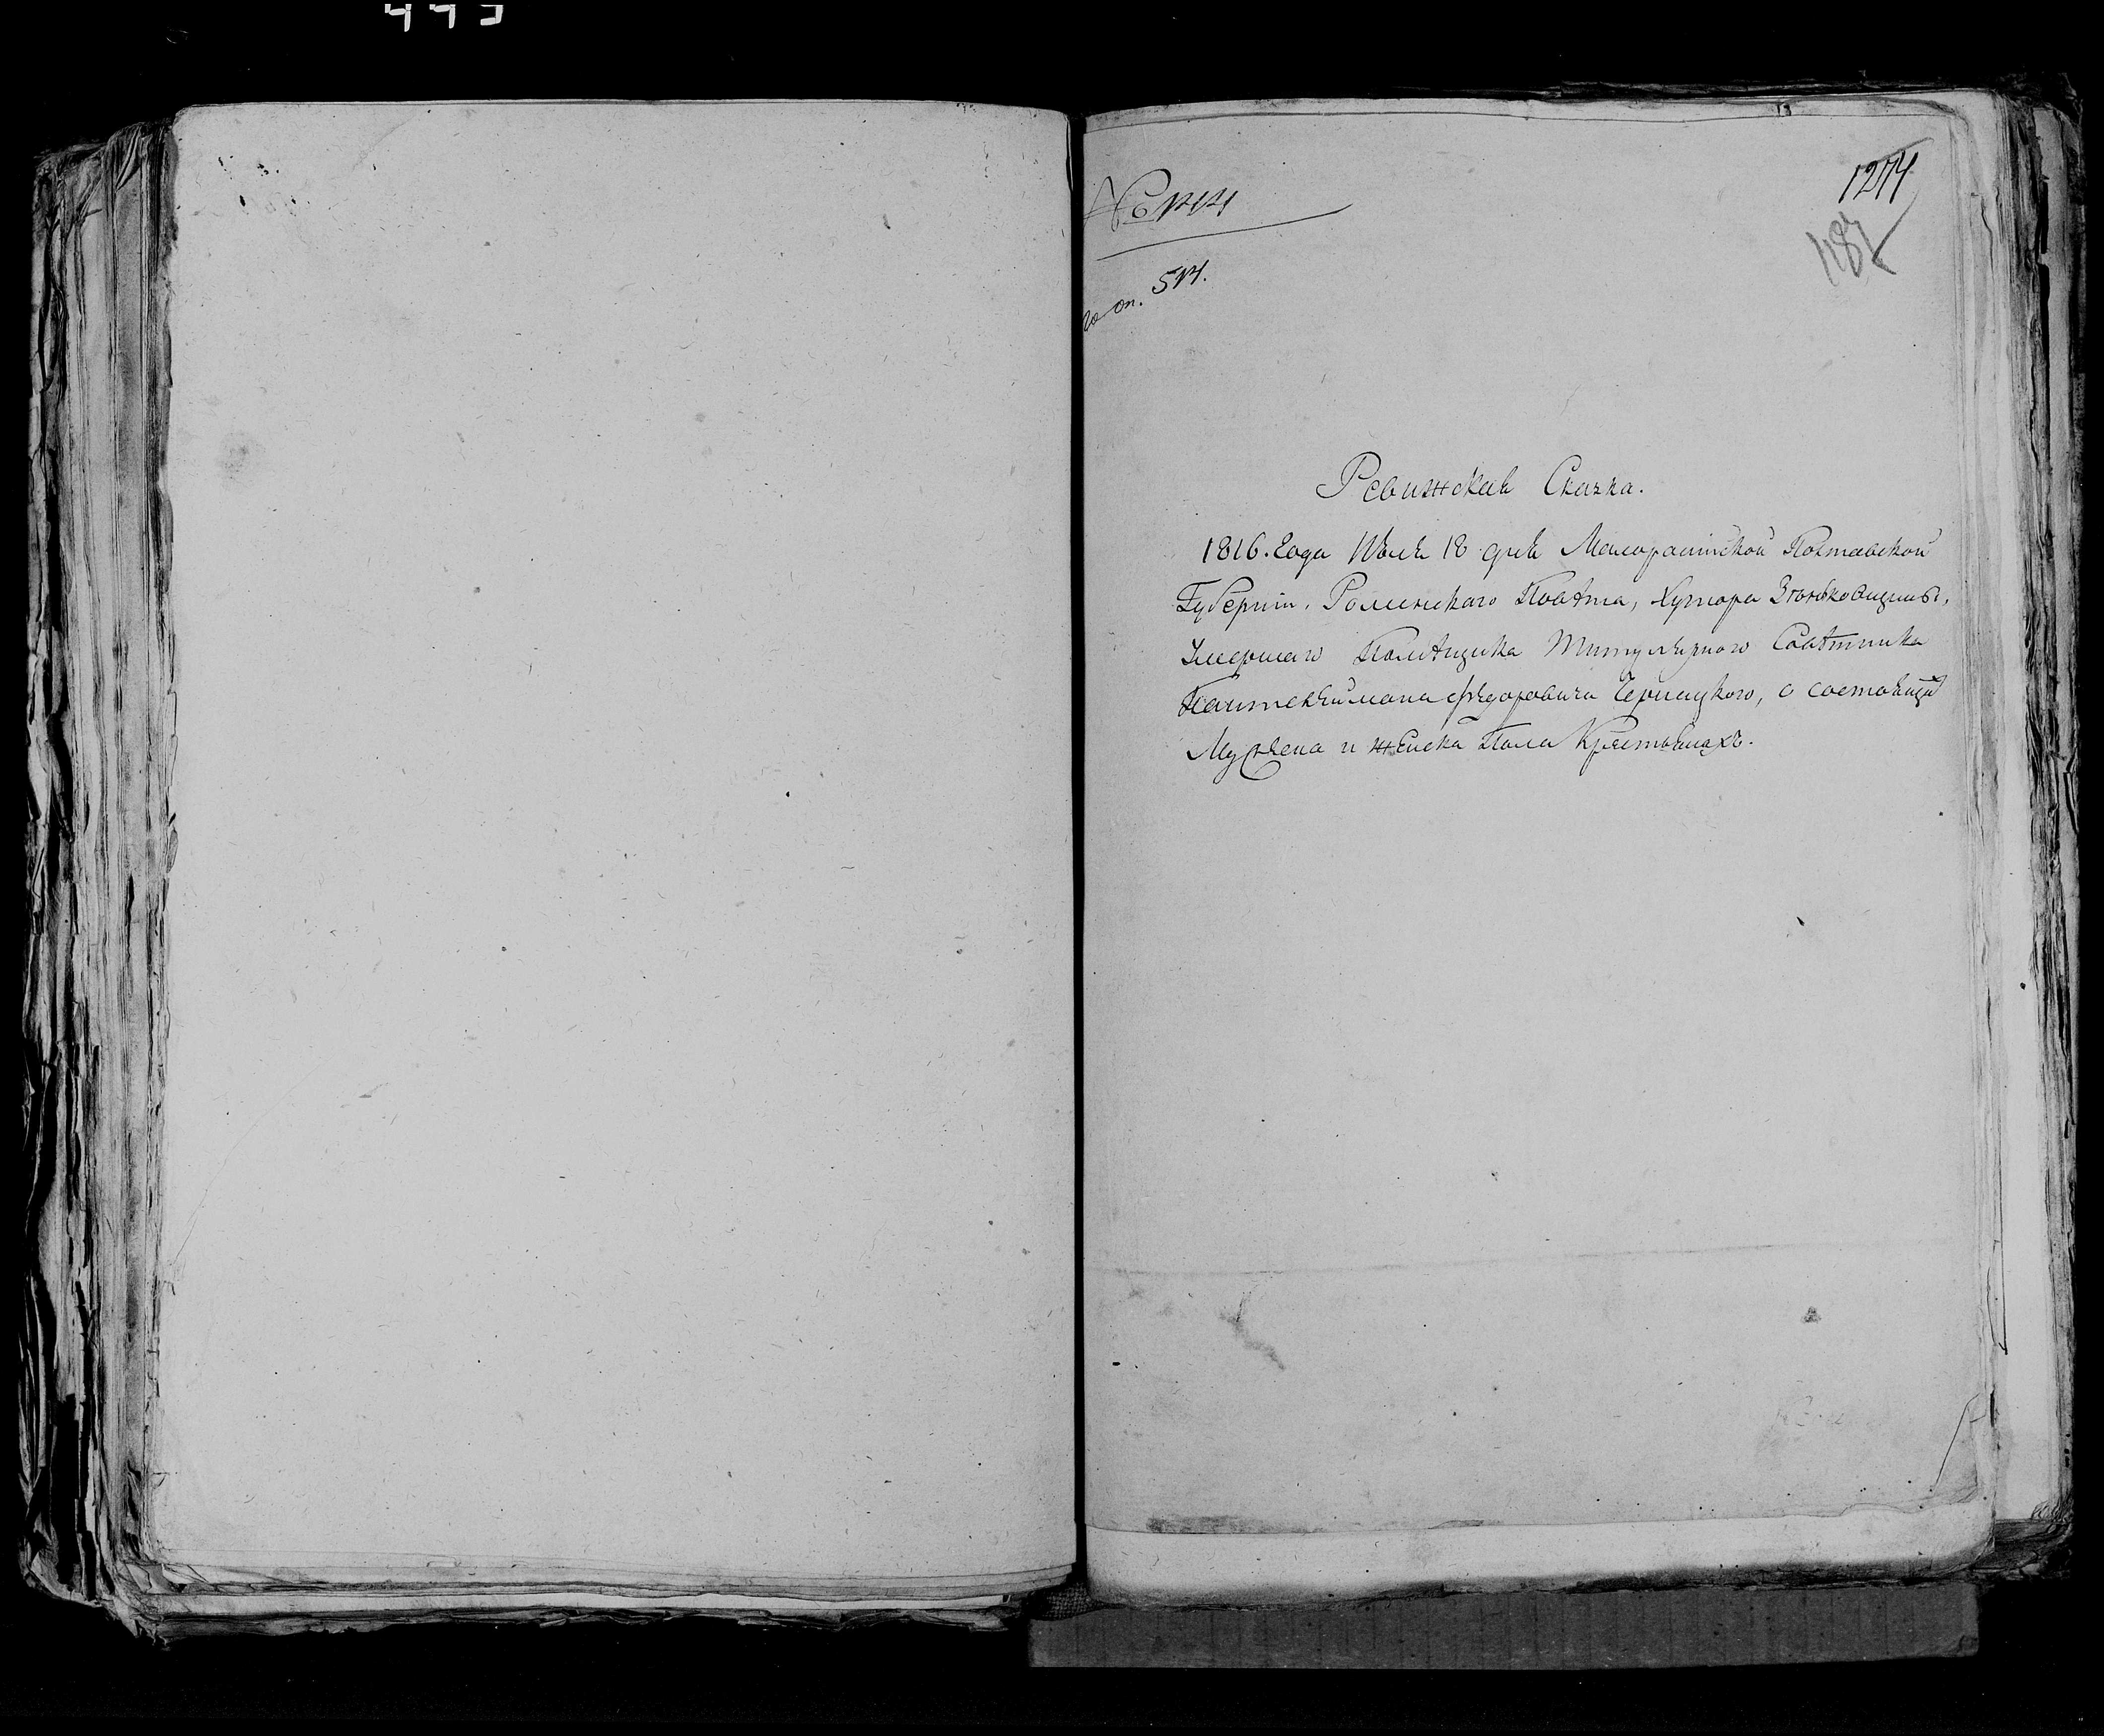 1274
1187
по оп. 514.
Ревижская Сказка.
1816. года Июля 18 дня Малоросійской Полтавской
Губерніи. Роменского Повѣта, хутора Зѣньковщины,
Умершаго Помѣщика Титулярного Совѣтника
Пантелѣймона Федоровича Чернецкого, о состоящих
Мужеска и женска Пола Крестьянахъ.